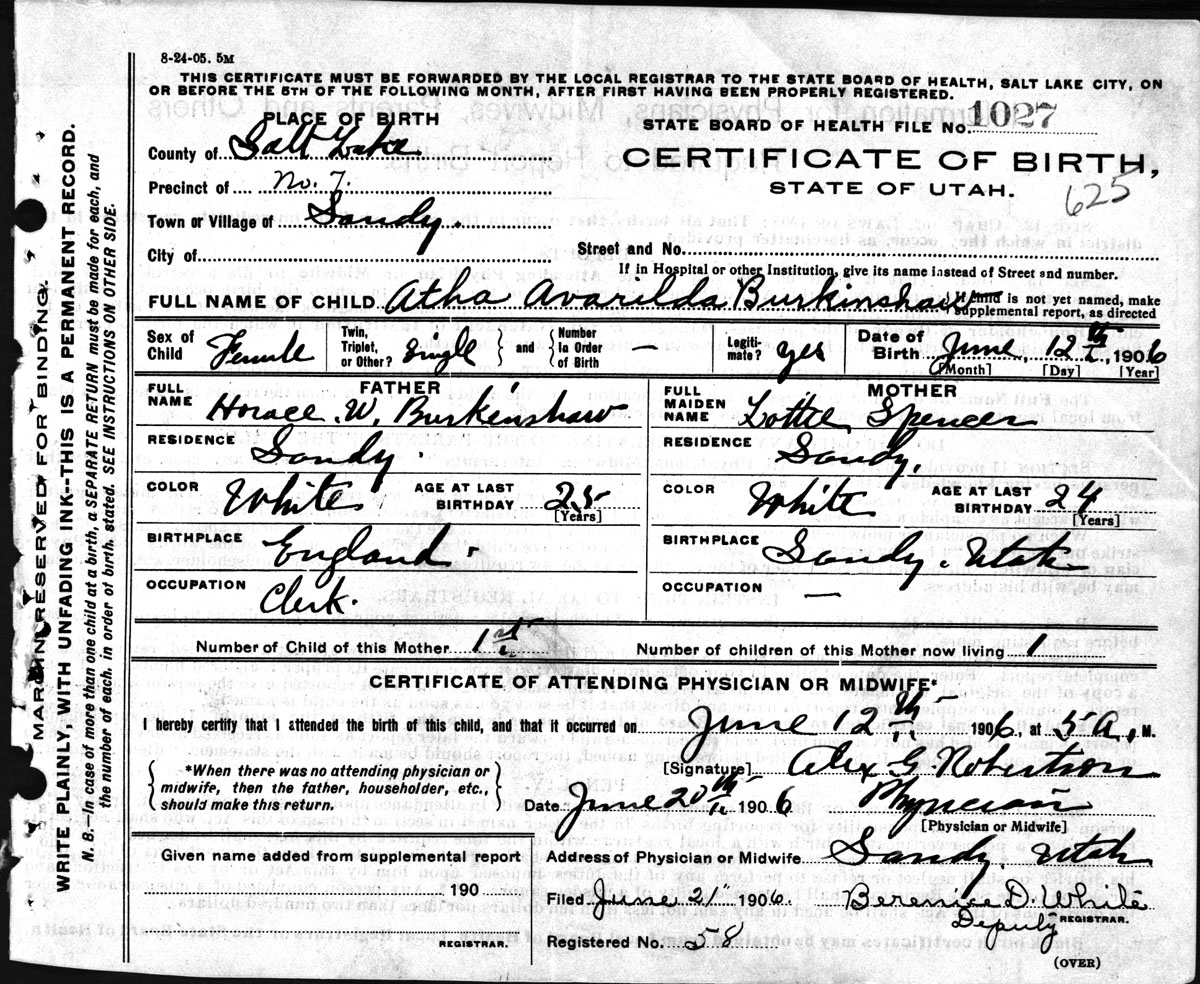 8-24-05. 5M
THIS CERTIFICATE MUST BE FORWARDED BY THE LOCAL REGISTRAR TO THE STATE BOARD OF HEALTH, SALT LAKE CITY, ON
OR BEFORE THE 5TH OF THE FOLLOWING MONTH, AFTER FIRST HAVING BEEN PROPERLY REGISTERED.
PLACE OF BIRTH
STATE BOARD OF HEALTH FILE NO. 1027
County of Salt Lake
CERTIFICATE OF BIRTH,
STATE OF UTAH.
625
Precinct of No. 7.
Town or Village of Sandy.
City of
Street and No.
If in Hospital or other Institution, give its name instead of Street and number.
FULL NAME OF CHILD Atha Avarilda Burkinshaw
If child is not yet named, make
supplemental report, as directed
Sex of Child Female
Twin, Triplet, or Other? Single
and
Number In Order of Birth —
Legiti-mate? yes
Date of Birth June, 12th, 1906
[Month] [Day] [Year]
FATHER
FULL NAME Horace W. Burkinshaw
RESIDENCE Sandy.
COLOR White AGE AT LAST BIRTHDAY 25 [Years]
BIRTHPLACE England.
OCCUPATION Clerk.
MOTHER
FULL MAIDEN NAME Lottie Spencer
RESIDENCE Sandy.
COLOR White AGE AT LAST BIRTHDAY 24 [Years]
BIRTHPLACE Sandy. Utah
OCCUPATION —
Number of Child of this Mother 1st
Number of children of this Mother now living 1
CERTIFICATE OF ATTENDING PHYSICIAN OR MIDWIFE*
I hereby certify that I attended the birth of this child, and that it occurred on June 12th 1906, at 5 A. M.
*When there was no attending physician or
midwife, then the father, householder, etc.,
should make this return.
[Signature] Alex G. Robertson
Date June 20th 1906 Physician
[Physician or Midwife]
Given name added from supplemental report
190
REGISTRAR.
Address of Physician or Midwife Sandy Utah
Filed June 21" 1906. Berenice D. White
Deputy REGISTRAR.
Registered No. 58
(OVER)
MARGIN RESERVED FOR BINDING.
WRITE PLAINLY, WITH UNFADING INK--THIS IS A PERMANENT RECORD.
N. B.—In case of more than one child at a birth, a SEPARATE RETURN must be made for each, and
the number of each, in order of birth, stated. SEE INSTRUCTIONS ON OTHER SIDE.